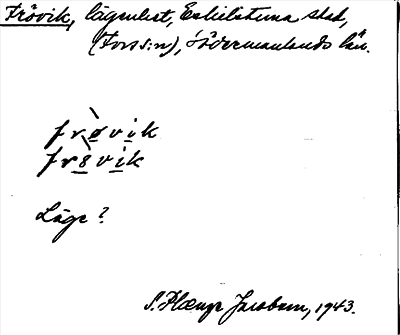 Frövik, lägenhet, Eskilstuna stad,
(Fors s:n), Södermanlands län.
frø̀vik
frö̀vik
Läge?
S. Plænge Jacobson, 1943.